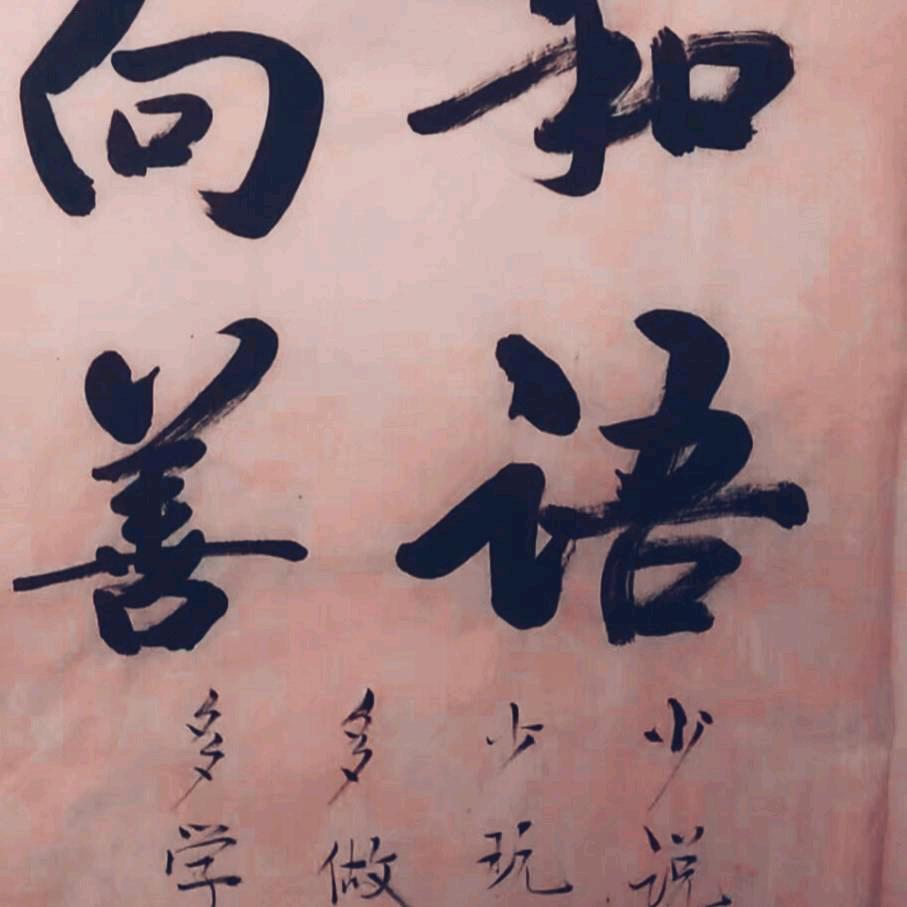 和语
向善
少说
少玩
多做
多学